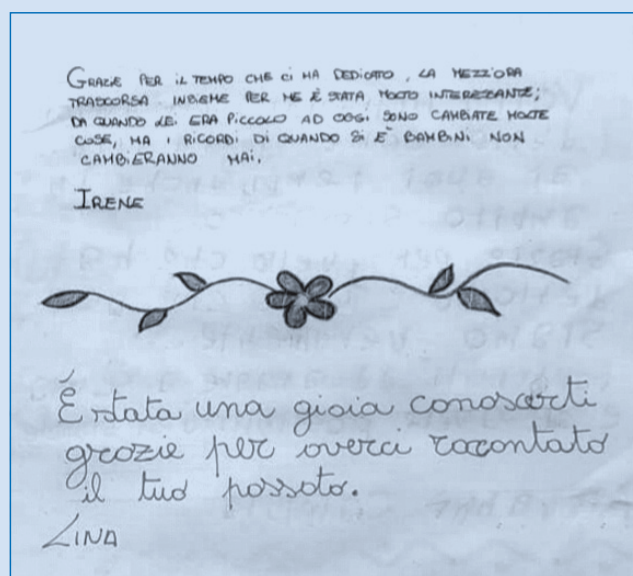 GRAZIE PER IL TEMPO CHE CI HA DEDICATO, LA MEZZ'ORA
TRASCORSA INSIEME PER ME È STATA MOLTO INTERESSANTE;
DA QUANDO LEI ERA PICCOLO AD OGGI SONO CAMBIATE MOLTE
COSE, MA I RICORDI DI QUANDO SI E' BAMBINI NON
CAMBIERANNO MAI.
IRENE
È stata una gioia conoscerti
grazie per averci racontato
il tuo passato.
LINA